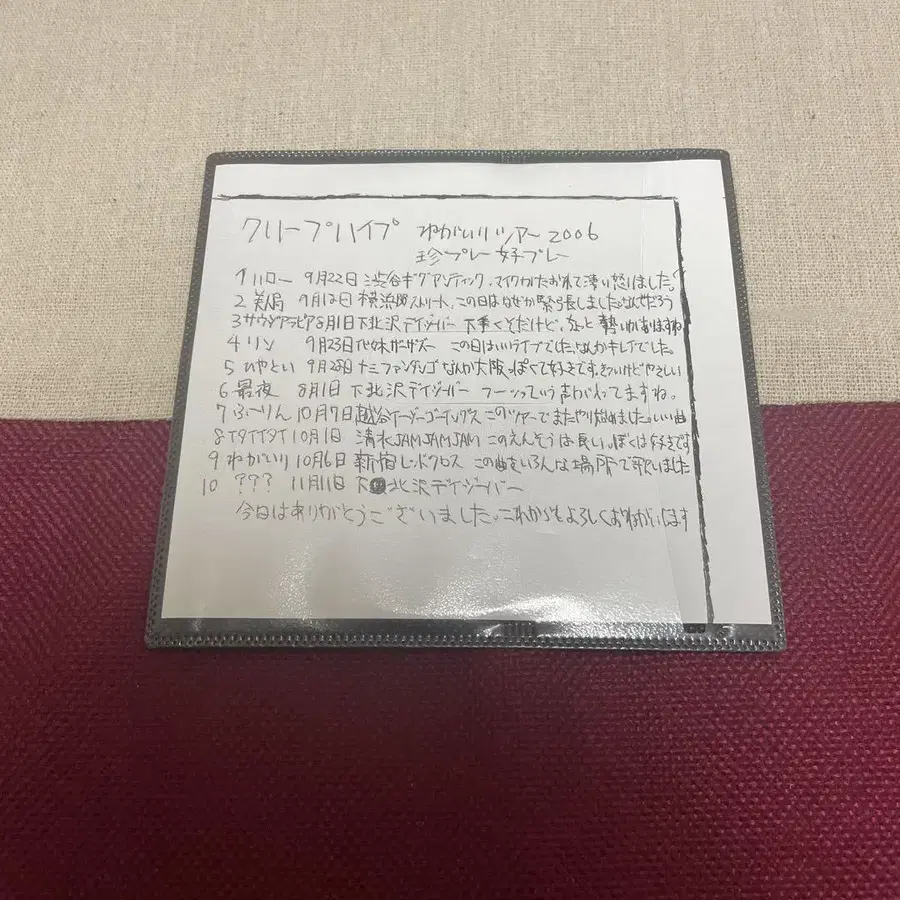 クリープハイプ ねがいりツアー 2006
珍プレー好プレー
1 ハロー 9月22日 渋谷ギグアンティック、マイクがたおれて凄い怒りました。
2 美局 9月12日 横浜 ストリート、この日はなぜか緊張しました。なぜだろう
3 サウジアラビア 8月1日 下北沢デイジーバー 下手くそだけど、 勢いがありますね
4 リン 9月23日 代々木ザーザズー この日はいいライブでした。なんかキレイでした。
5 ひやとい 9月28日 ナミファンダンゴ なんか大阪っぽくて好きです。 けどやさしい
6 最夜 8月1日 下北沢デイジーバー フーッっていう声がはいってますね。
7 ふーりん 10月7日 越谷イージーゴーイングス このツアーでまたやり始めました。いい曲
8 イタイイタイ 10月1日 清水JAMJAMJAM このえんそうは長い。ぼくは好きです
9 ねがいり 10月6日 新宿レッドクロス この曲をいろんな場所で歌いました
10 ??? 11月11日 下北沢デイジーバー
今日はありがとうございました。これからもよろしくおねがいします